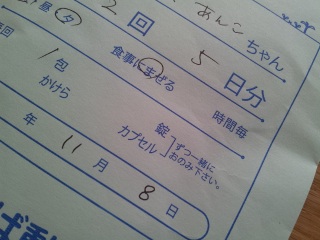 あんこ ちゃん
昼 夕 2 回 5 日分
毎回 1 包 食事にまぜる 時間毎
かけら 錠
カプセル ずつ一緒に
おのみ下さい。
年 11 月 8 日